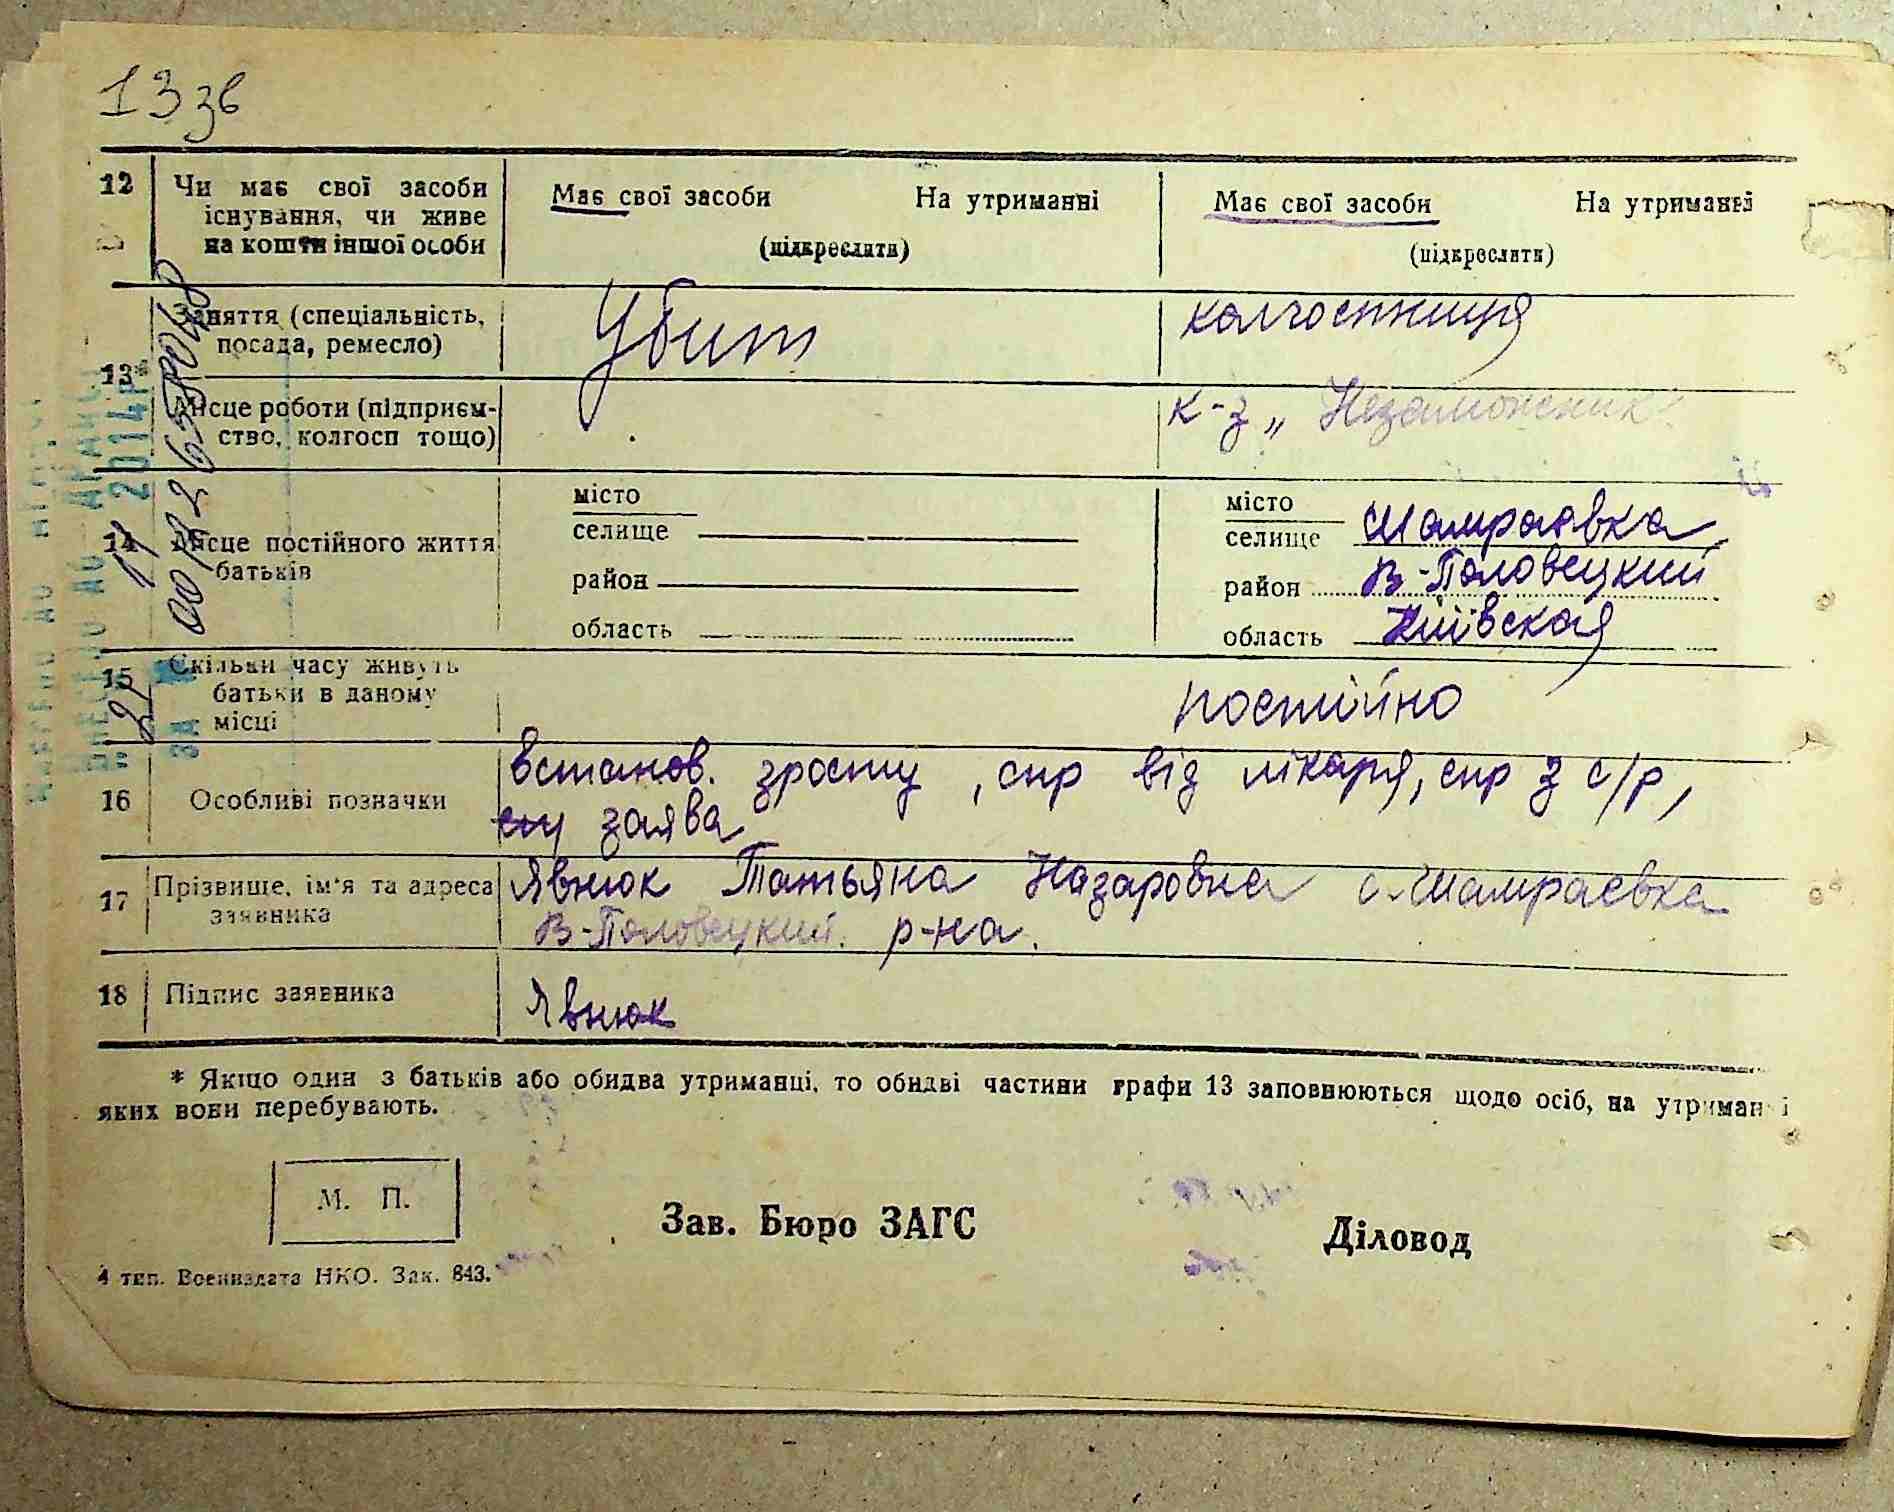 13 зв
12 Чи має свої засоби існування, чи живе на кошти іншої особи
Має свої засоби На утриманні
(підкреслити)
Має свої засоби На утриманні
(підкреслити)
13*
Заняття (спеціальність, посада, ремесло)
Убит
колгоспниця
Місце роботи (підприємство, колгосп тощо)
к-з „Незаможник"
14 Місце постійного життя батьків
місто
селище
район
область
місто
селище Шамраєвка
район В-Половецкий
область Київская
15 Скільки часу живуть батьки в даному місці
постійно
16 Особливі позначки
встанов. зросту, спр від лікаря, спр з с/р,
заява
17 Прізвище, ім'я та адреса заявника
Явнюк Татьяна Назаровна с. Шамраевка
В-Половецкий р-на.
18 Підпис заявника
Явнюк
* Якщо один з батьків або обидва утриманці, то обидві частини графи 13 заповнюються щодо осіб, на утриманні
яких вони перебувають.
М. П.
Зав. Бюро ЗАГС
Діловод
4 тип. Воениздата НКО. Зак. 843.
2014р